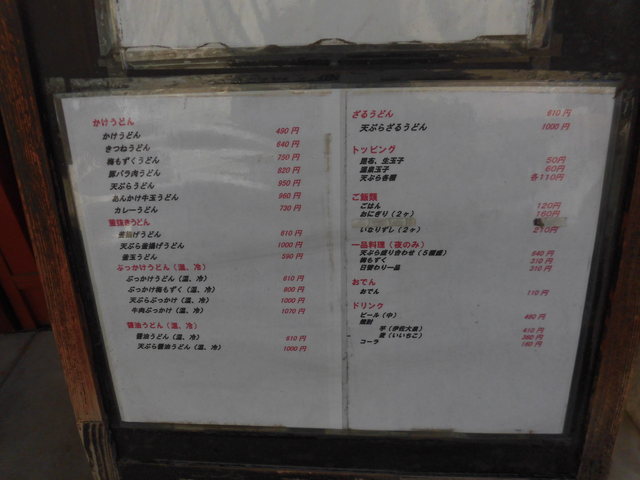 かけうどん
かけうどん 490円
きつねうどん 640円
梅もずくうどん 750円
豚バラ肉うどん 820円
天ぷらうどん 950円
あんかけ牛玉うどん 960円
カレーうどん 730円
釜抜きうどん
釜揚げうどん 610円
天ぷら釜揚げうどん 1000円
釜玉うどん 590円
ぶっかけうどん（温、冷）
ぶっかけうどん（温、冷） 610円
ぶっかけ梅もずく（温、冷） 800円
天ぷらぶっかけ（温、冷） 1000円
牛肉ぶっかけ（温、冷） 1070円
醤油うどん（温、冷）
醤油うどん（温、冷） 610円
天ぷら醤油うどん（温、冷） 1000円
ざるうどん 610円
天ぷらざるうどん 1000円
トッピング
昆布、生玉子 50円
温泉玉子 60円
天ぷら各種 各110円
ご飯類
ごはん 120円
おにぎり（２ヶ） 160円
いなりずし（２ヶ） 210円
一品料理（夜のみ）
天ぷら盛り合わせ（５種盛） 640円
梅もずく 310円
日替わり一品 310円
おでん
おでん 110円
ドリンク
ビール（中） 460円
焼酎
芋（伊佐大泉） 410円
麦（いいちこ） 360円
コーラ 160円